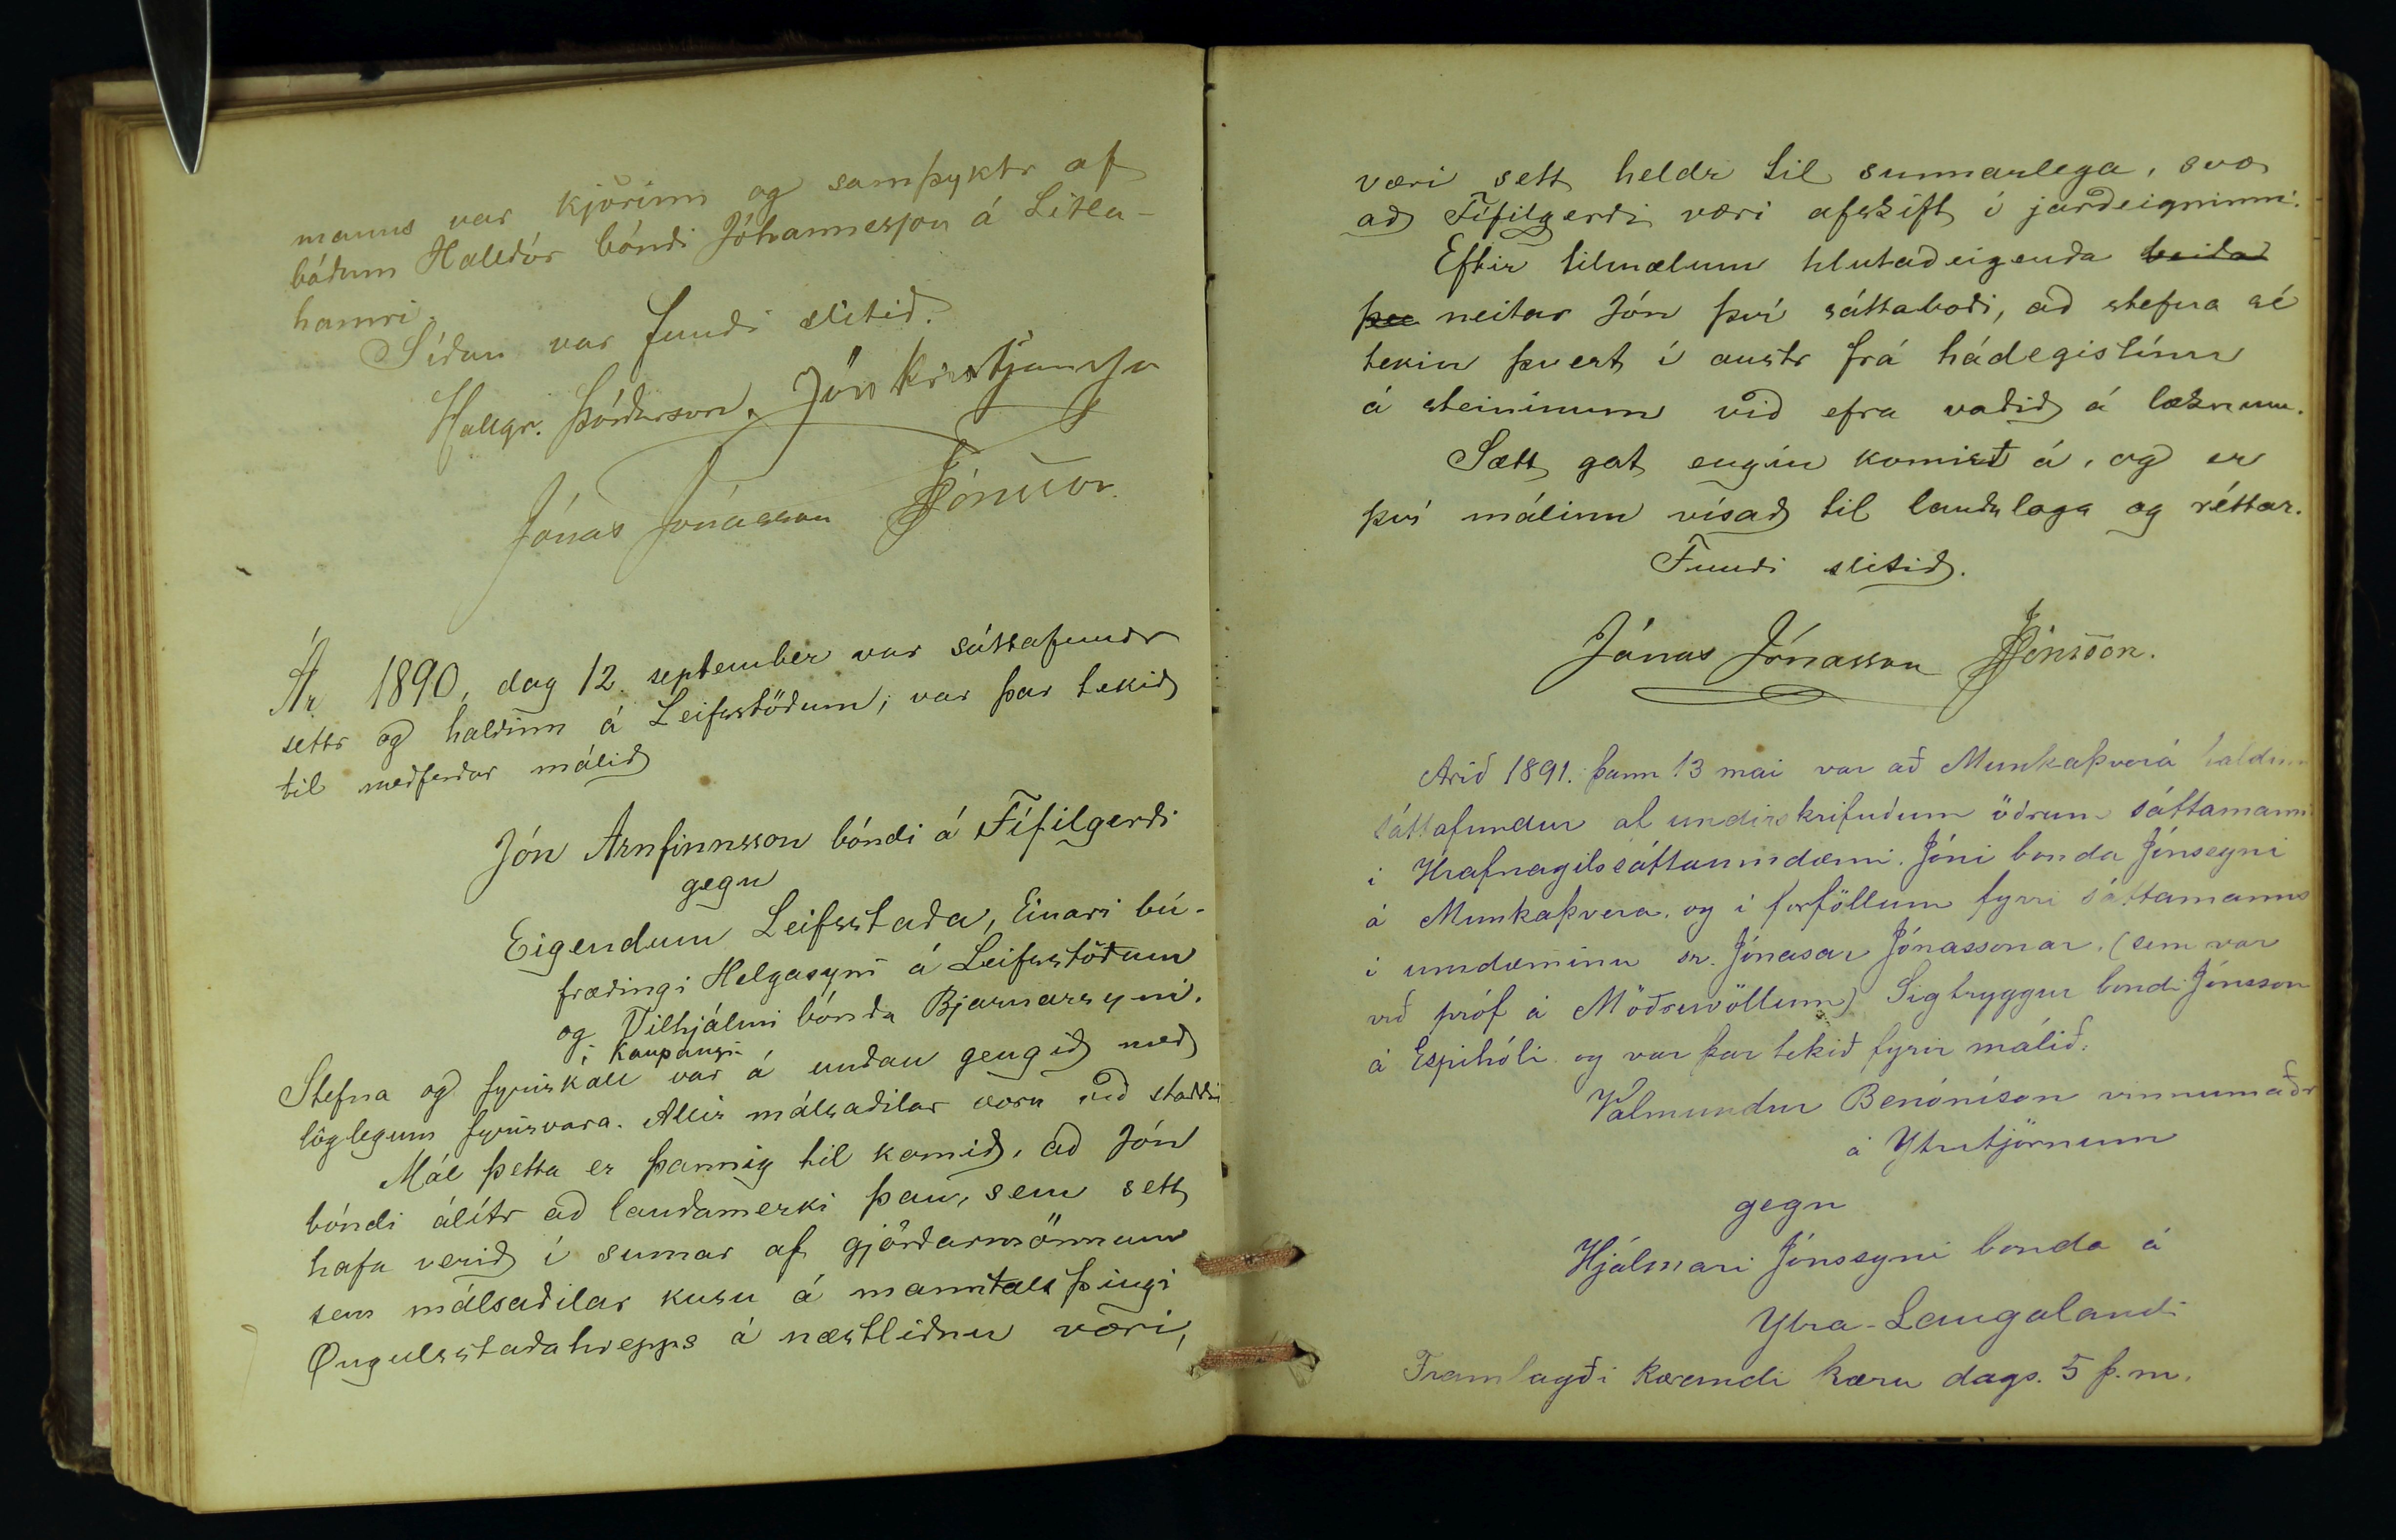 manns var kjörinn og samþyktr af
báðum Halldór bóndi Jóhannesson á Litla-
hamri.
Síðan var fundi slitið.
Hallgr. Þórðarson. Jón Kristjansson
Jónas Jónasson JJónsson.
Ár 1890, dag 12. september var sáttafundr
settr og haldinn á Leifsstöðum; var þar tekið
til meðferðar málið
Jón Arnfinnsson bóndi á Fífilgerði
gegn
Eigendum Leifsstaða, Einari bú-
fræðingi Helgasyni á Leifsstöðum
og Vilhjálmi bónda Bjarnarsyni.
í Kaupangi
Stefna og fyrirkall var á undan gengið með
löglegum fyrirvara. Allir málsaðilar voru við staddir
Mál þetta er þannig til komið, að Jón
bóndi álítr að landamerki þau, sem sett
hafa verið í sumar af gjörðarmönnum
sem málsaðilar kusu á manntalsþingi
Øngulsstaðahrepps á næstliðnu vori,
væri sett heldr til sunnarlega, svo
að Fífilgerði væri afskift í jarðeigninni.
Eftir tilmælum hlutaðeigenda beiðað
þei neitar Jón því sáttaboði, að stefna sé
tekin þvert í austr frá hádegislínu
á steininum við efra vaðið á læknum.
Sætt gat engin komist á, og er
því málinu vísað til landslaga og réttar.
Fundi slitið.
Jónas Jónasson JJónsson.
Arið 1891. þann 13 mai var að Munkaþverá haldinn
sáttafundur af undirskrifuðum öðrum sáttamanni
i Hrafnagilssáttaumdæmi. Jóni bonda Jónssyni
á Munkaþvera. og i forföllum fyrri sáttamanns
i umdæminu sr. Jónasar Jónassonar. (sem var
við próf á Möðruvöllum) Sigtryggur bondi Jónsson
á Espihóli og var þar tekið fyrir málið:
Valmundur Benóníson vinnumaðr
á Ytritjörnum
gegn
Hjálmari Jónssyni bonda á
Ytra-Laugalandi
Framlagði kærandi kæru dags. 5 þ.m.